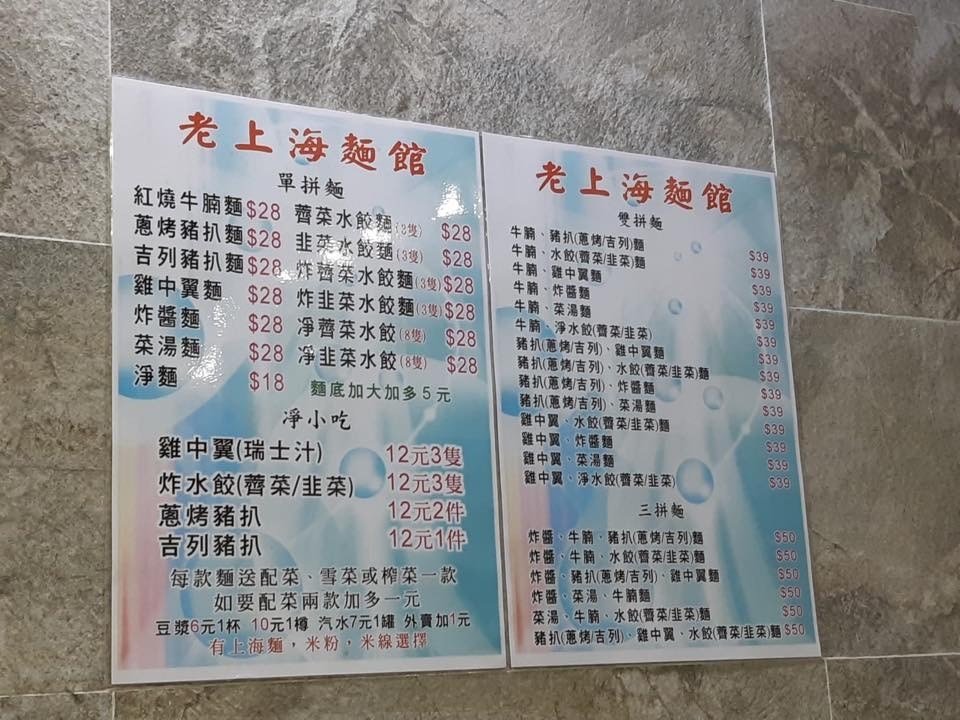 老上海麵館
單拼麵
紅燒牛腩麵 $28 薺菜水餃麵(3隻) $28
蔥烤豬扒麵 $28 韭菜水餃麵(3隻) $28
吉列豬扒麵 $28 炸薺菜水餃麵(3隻) $28
雞中翼麵 $28 炸韭菜水餃麵(3隻) $28
炸醬麵 $28 凈薺菜水餃(8隻) $28
菜湯麵 $28 凈韭菜水餃(8隻) $28
淨麵 $18 麵底加大加多5元
凈小吃
雞中翼(瑞士汁) 12元3隻
炸水餃(薺菜/韭菜) 12元3隻
蔥烤豬扒 12元2件
吉列豬扒 12元1件
每款麵送配菜、雪菜或榨菜一款
如要配菜兩款加多一元
豆漿6元1杯 10元1樽 汽水7元1罐 外賣加1元
有上海麵，米粉，米線選擇
老上海麵館
雙拼麵
牛腩、豬扒(蔥烤/吉列)麵 $39
牛腩、水餃(薺菜/韭菜)麵 $39
牛腩、雞中翼麵 $39
牛腩、炸醬麵 $39
牛腩、菜湯麵 $39
牛腩、淨水餃(薺菜/韭菜) $39
豬扒(蔥烤/吉列)、雞中翼麵 $39
豬扒(蔥烤/吉列)、水餃(薺菜/韭菜)麵 $39
豬扒(蔥烤/吉列)、炸醬麵 $39
豬扒(蔥烤/吉列)、菜湯麵 $39
雞中翼、水餃(薺菜/韭菜)麵 $39
雞中翼、炸醬麵 $39
雞中翼、菜湯麵 $39
雞中翼、淨水餃(薺菜/韭菜) $39
三拼麵
炸醬、牛腩、豬扒(蔥烤/吉列)麵 $50
炸醬、牛腩、水餃(薺菜/韭菜)麵 $50
炸醬、豬扒(蔥烤/吉列)、雞中翼麵 $50
炸醬、菜湯、牛腩麵 $50
菜湯、牛腩、水餃(薺菜/韭菜)麵 $50
豬扒(蔥烤/吉列)、雞中翼、水餃(薺菜/韭菜)麵 $50